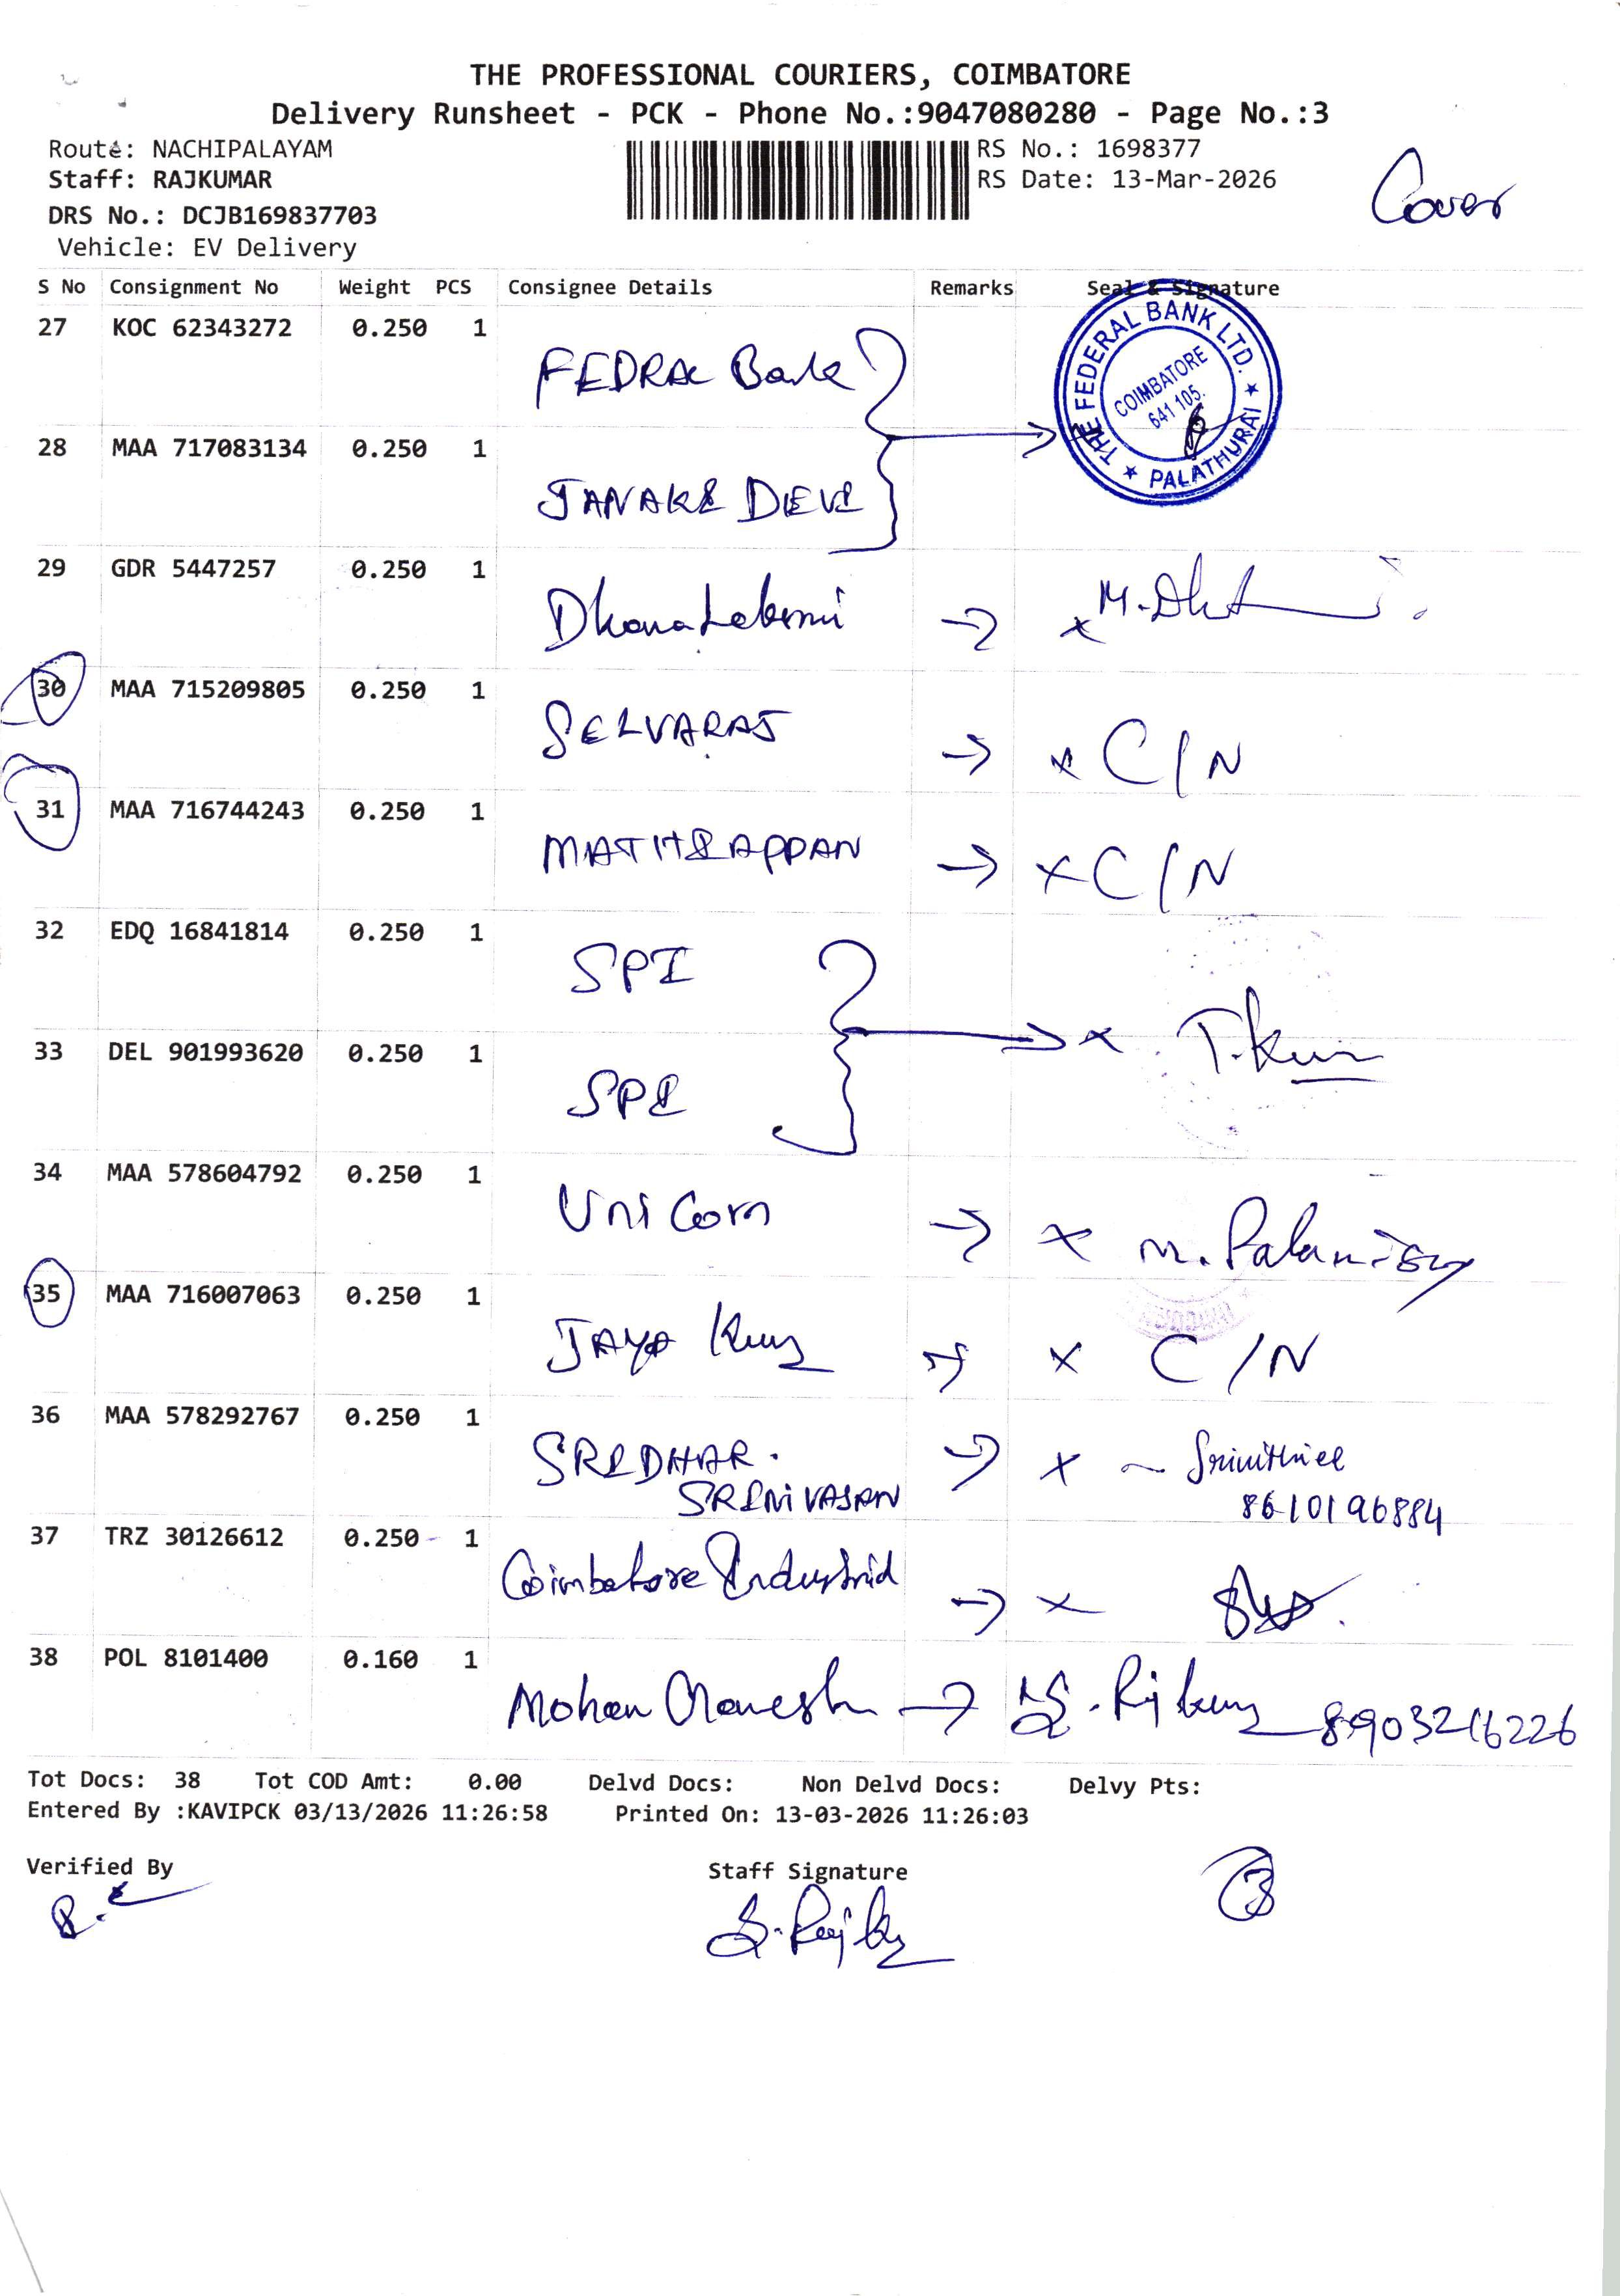 THE PROFESSIONAL COURIERS, COIMBATORE
Delivery Runsheet - PCK - Phone No.:9047080280 - Page No.:3
Route: NACHIPALAYAM RS No.: 1698377
Staff: RAJKUMAR RS Date: 13-Mar-2026 Cover
DRS No.: DCJB169837703
Vehicle: EV Delivery
S No Consignment No Weight PCS Consignee Details Remarks Seal & Signature
27 KOC 62343272 0.250 1 FEDRAL Bank
THE FEDERAL BANK LTD. COIMBATORE 641 105. PALATHURAI
28 MAA 717083134 0.250 1 JANAKI DEVI
29 GDR 5447257 0.250 1 DhanaLakshmi
30 MAA 715209805 0.250 1 SELVARAJ C/N
31 MAA 716744243 0.250 1 MATHIAPPAN C/N
32 EDQ 16841814 0.250 1 SPI
33 DEL 901993620 0.250 1 SPI T.Kum
34 MAA 578604792 0.250 1 UniCorn M.Palanisamy
35 MAA 716007063 0.250 1 JAYA Kumar C/N
36 MAA 578292767 0.250 1 SRIDHAR. SRINIVASAN
8610196884
37 TRZ 30126612 0.250 1 Coimbatore Industrial
38 POL 8101400 0.160 1 Mohan S.Rajkumar 8903216226
Tot Docs: 38 Tot COD Amt: 0.00 Delvd Docs: Non Delvd Docs: Delvy Pts:
Entered By :KAVIPCK 03/13/2026 11:26:58 Printed On: 13-03-2026 11:26:03
Verified By Staff Signature 3
S.Rajkumar